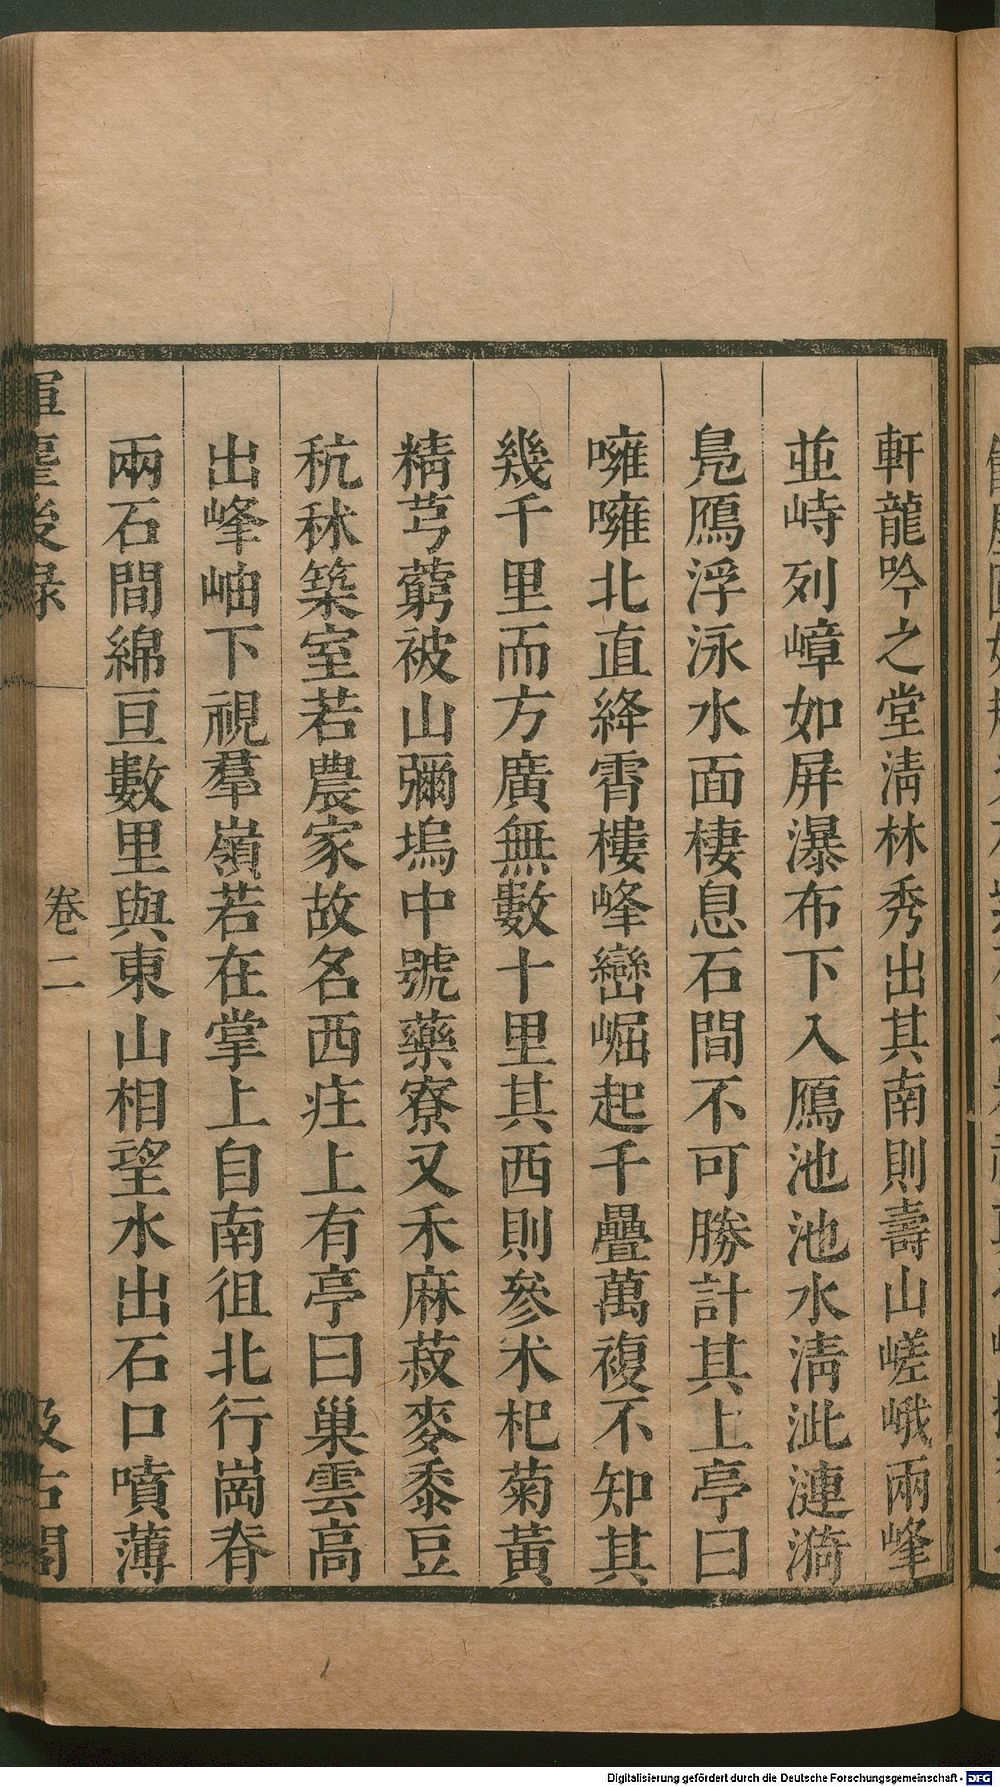 軒龍吟之堂淸林秀出其南則壽山嵯峨兩峰
並峙列嶂如屏瀑布下入鴈池池水淸泚漣漪
鳧鴈浮泳水面棲息石間不可勝計其上亭曰
噰噰北直絳霄樓峰巒崛起千疊萬複不知其
幾千里而方廣無數十里其西則參朮杞菊黃
精芎藭被山彌塢中號藥寮又禾麻菽麥黍豆
秔秫築室若農家故名西庄上有亭曰巢雲高
出峰岫下視羣嶺若在掌上自南徂北行崗脊
兩石間綿亘數里與東山相望水出石口噴薄
後录
卷二
古閣
Digitalisierung gefördert durch die Deutsche Forschungsgemeinschaft - DFG